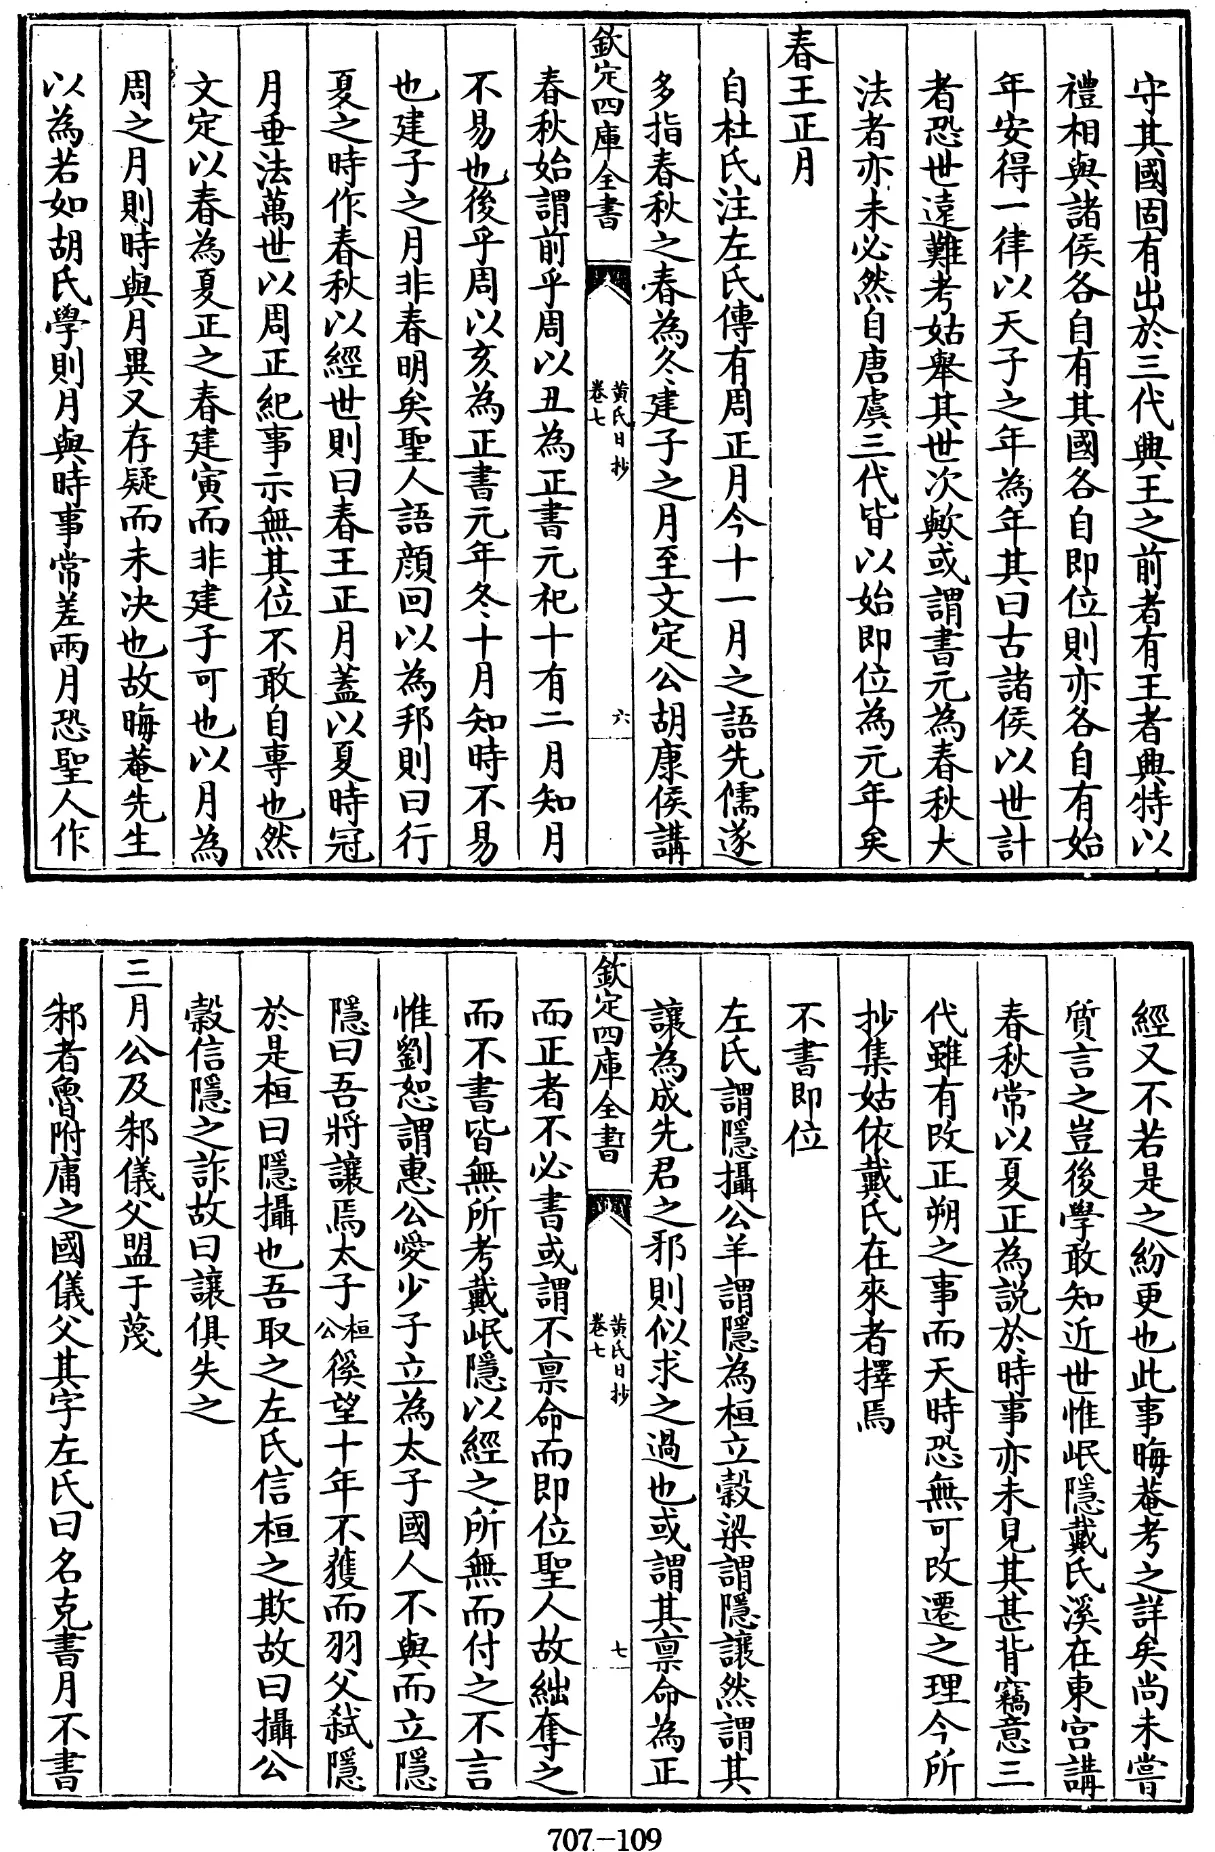 守其國固有出於三代典王之前者有王者典特以
禮相與諸侯各自有其國各自即位則亦各自有始
年安得一律以天子之年為年其曰古諸侯以世計
者恐世遠難考姑舉其世次歟或謂書元為春秋大
法者亦未必然自唐虞三代皆以始即位為元年矣
春王正月
自杜氏注左氏傳有周正月今十一月之語先儒遂
多指春秋之春為冬建子之月至文定公胡康侯講
欽定四庫全書
黄氏日抄
卷七
六
春秋始謂前乎周以丑為正書元祀十有二月知月
不易也後乎周以亥為正書元年冬十月知時不易
也建子之月非春明矣聖人語顔回以為邦則曰行
夏之時作春秋以經世則曰春王正月蓋以夏時冠
月垂法萬世以周正紀事示無其位不敢自專也然
文定以春為夏正之春建寅而非建子可也以月為
周之月則時與月異又存疑而未決也故晦菴先生
以為若如胡氏學則月與時事常差兩月恐聖人作
經又不若是之紛更也此事晦菴考之詳矣尚未嘗
質言之豈後學敢知近世惟岷隱戴氏溪在東宫講
春秋常以夏正為説於時事亦未見其甚背竊意三
代雖有改正朔之事而天時恐無可改遷之理今所
抄集姑依戴氏在來者擇焉
不書即位
左氏謂隱攝公羊謂隱為桓立穀梁謂隱讓然謂其
讓為成先君之邪則似求之過也或謂其禀命為正
欽定四庫全書
黄氏日抄
卷七
七
而正者不必書或謂不禀命而即位聖人故絀奪之
而不書皆無所考戴岷隱以經之所無而付之不言
惟劉恕謂惠公愛少子立為太子國人不與而立隱
隱曰吾將讓焉太子桓公徯望十年不獲而羽父弑隱
於是桓曰隱攝也吾取之左氏信桓之欺故曰攝公
穀信隱之詐故曰讓俱失之
三月公及邾儀父盟于蔑
邾者魯附庸之國儀父其字左氏曰名克書月不書
707-109